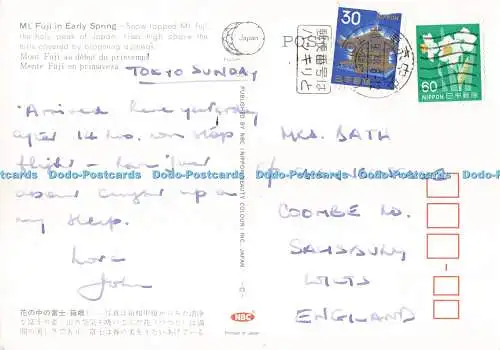 Mt. Fuji in Early Spring —Snow-topped Mt. Fuji,
the holy peak of Japan, rises high above the
hills covered by blooming azaleas.
Mont Fuji au début du printemps.
Mente Fuji en primavera.
TOKYO SUNDAY
Arrived here yesterday
after 14 hrs. non stop
flight – have just
about caught up on
my sleep.
Love
John
花の中の富士
Japan
POST
PUBLISHED BY NBC (NIPPON BEAUTY COLOUR) INC. JAPAN
NBC
Printed in Japan
30
NIPPON
日本郵便
郵便番号は
ハッキリと
60
NIPPON 日本郵便
MRS. BATH
COOMBE RD.
SALISBURY
WILTS
ENGLAND
Dodo-Postcards Dodo-Postcards Dodo-Postcards Dodo-Postcards